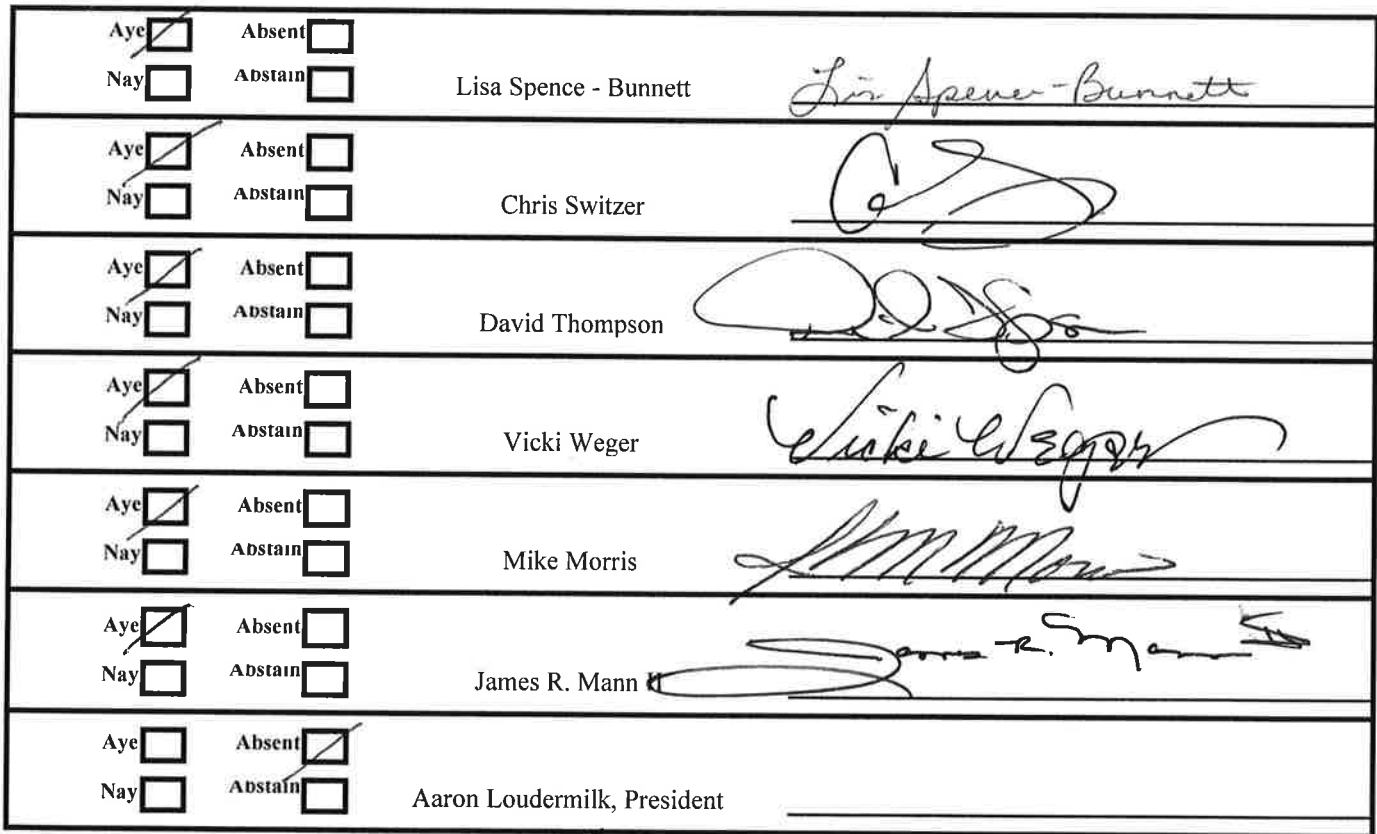 Aye Absent
Nay Abstain Lisa Spence - Bunnett Lisa Spence-Bunnett
Aye Absent
Nay Abstain Chris Switzer
Aye Absent
Nay Abstain David Thompson
Aye Absent
Nay Abstain Vicki Weger Vicki Weger
Aye Absent
Nay Abstain Mike Morris
Aye Absent James R. Mann II
Nay Abstain James R. Mann II
Aye Absent
Nay Abstain Aaron Loudermilk, President